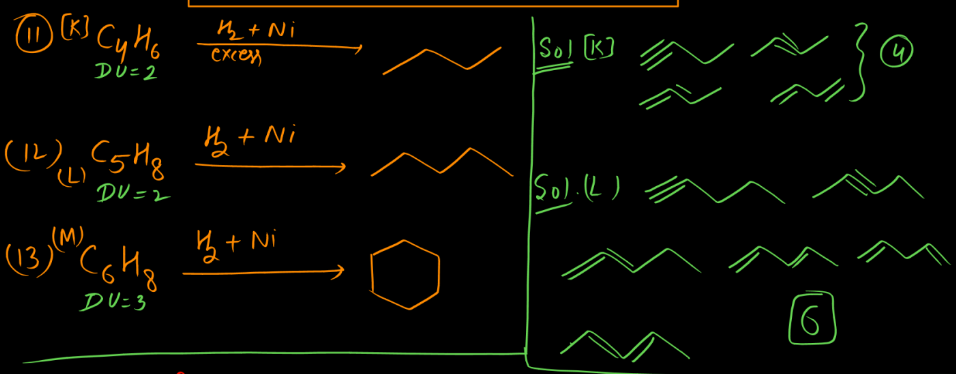 (11) [K] C4H6 H2 + Ni
excess
DU=2
(12) (L) C5H8 H2 + Ni
DU=2
(13) (M) C6H8 H2 + Ni
DU=3
Sol [K] } (4)
Sol. (L)
6